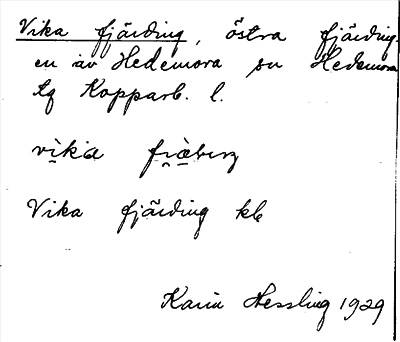 Vika fjärding, östra fjärding-
en av Hedemora sn Hedemora
tg Kopparb. l.
vika
Vika fjärding kb
Karin Hessling 1929